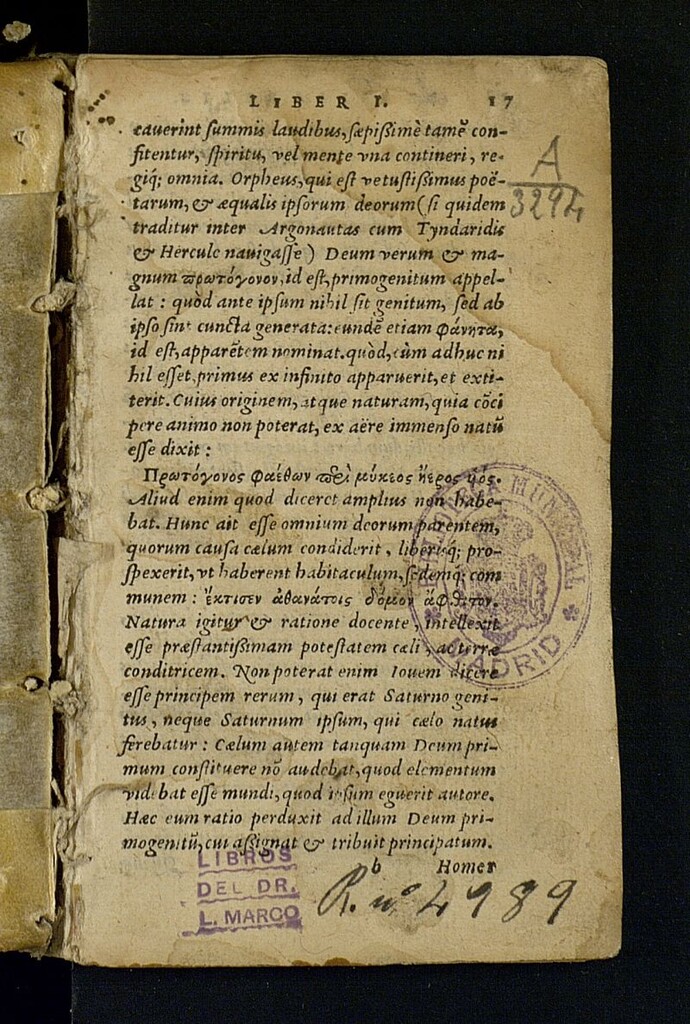 LIBER I. 17
cauerint summis laudibus, sæpißimè tamẽ con-
fitentur, spiritu, vel mente vna contineri, re-
giq́; omnia. Orpheus, qui est vetustißimus poë-
tarum, & æqualis ipsorum deorum (si quidem
traditur inter Argonautas cum Tyndaridis
& Hercule nauigasse) Deum verum & ma-
gnum πρωτόγονον, id est, primogenitum appel-
lat: quòd ante ipsum nihil sit genitum, sed ab
ipso sint cuncta generata: eundẽ etiam φάνητα,
id est, apparẽtem nominat. quòd, cùm adhuc ni
hil esset, primus ex infinito apparuerit, et exti-
terit. Cuius originem, atque naturam, quia cõci
pere animo non poterat, ex aëre immenso natũ
esse dixit:
Πρωτόγονος φαέθων περὶ μύκεος ἥερος ἠός.
Aliud enim quod diceret amplius non habe-
bat. Hunc ait esse omnium deorum parentem,
quorum causa cælum condiderit, liberisq́; pro-
spexerit, vt haberent habitaculum, sedemq́; com
munem: ἔκτισεν ἀθανάτοις δόμον ἄφθιτον.
Natura igitur & ratione docente, intellexit
esse præstantißimam potestatem cæli, ac terræ
conditricem. Non poterat enim Iouem dicere
esse principem rerum, qui erat Saturno geni-
tus, neque Saturnum ipsum, qui cælo natus
ferebatur: Cælum autem tanquam Deum pri-
mum constituere nõ audebat, quod elementum
videbat esse mundi, quod ipsum eguerit autore.
Hæc eum ratio perduxit ad illum Deum pri-
mogenitũ, cui aßignat & tribuit principatum.
b Homer
A
3294
MUNICIPAL
MADRID
LIBROS
DEL DR.
L. MARCO
R. nº 4989